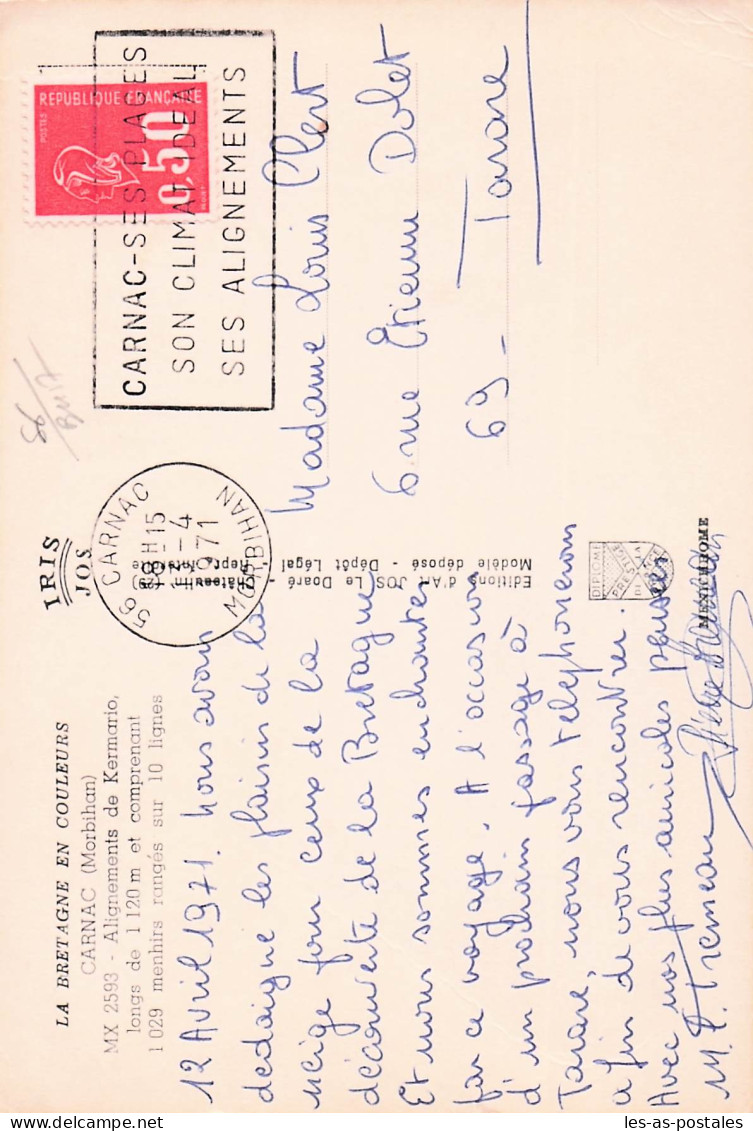 LA BRETAGNE EN COULEURS
CARNAC (Morbihan)
MX 2593 - Alignements de Kermario,
longs de 1 120 m et comprenant
1 029 menhirs rangés sur 10 lignes
IRIS
JOS
12 Avril 1971. Nous avons
dédaigné les plaisirs de la
neige pour ceux de la
découverte de la Bretagne
Et nous sommes enchantés
par ce voyage. A l'occasion
d'un prochain passage à
Tarare, nous vous telephonerons
afin de vous rencontrer.
Avec nos plus amicales pensées
Editions d'Art JOS Le Doaré - Châteaulin (29)
Modèle déposé - Dépôt Légal - Repr. Interdite
DIPLOME
PRESTIGE
DE LA
FRANCE
MEXICHROME
56 CARNAC
MORBIHAN
18H15
-4
1971
CARNAC-SES PLAGES
SON CLIMAT IDEAL
SES ALIGNEMENTS
REPUBLIQUE FRANÇAISE
POSTES
0,50
BEQUET
56/
Madame Louis Clert
6 rue Étienne Dolet
69 - Tarare
les-as-postales